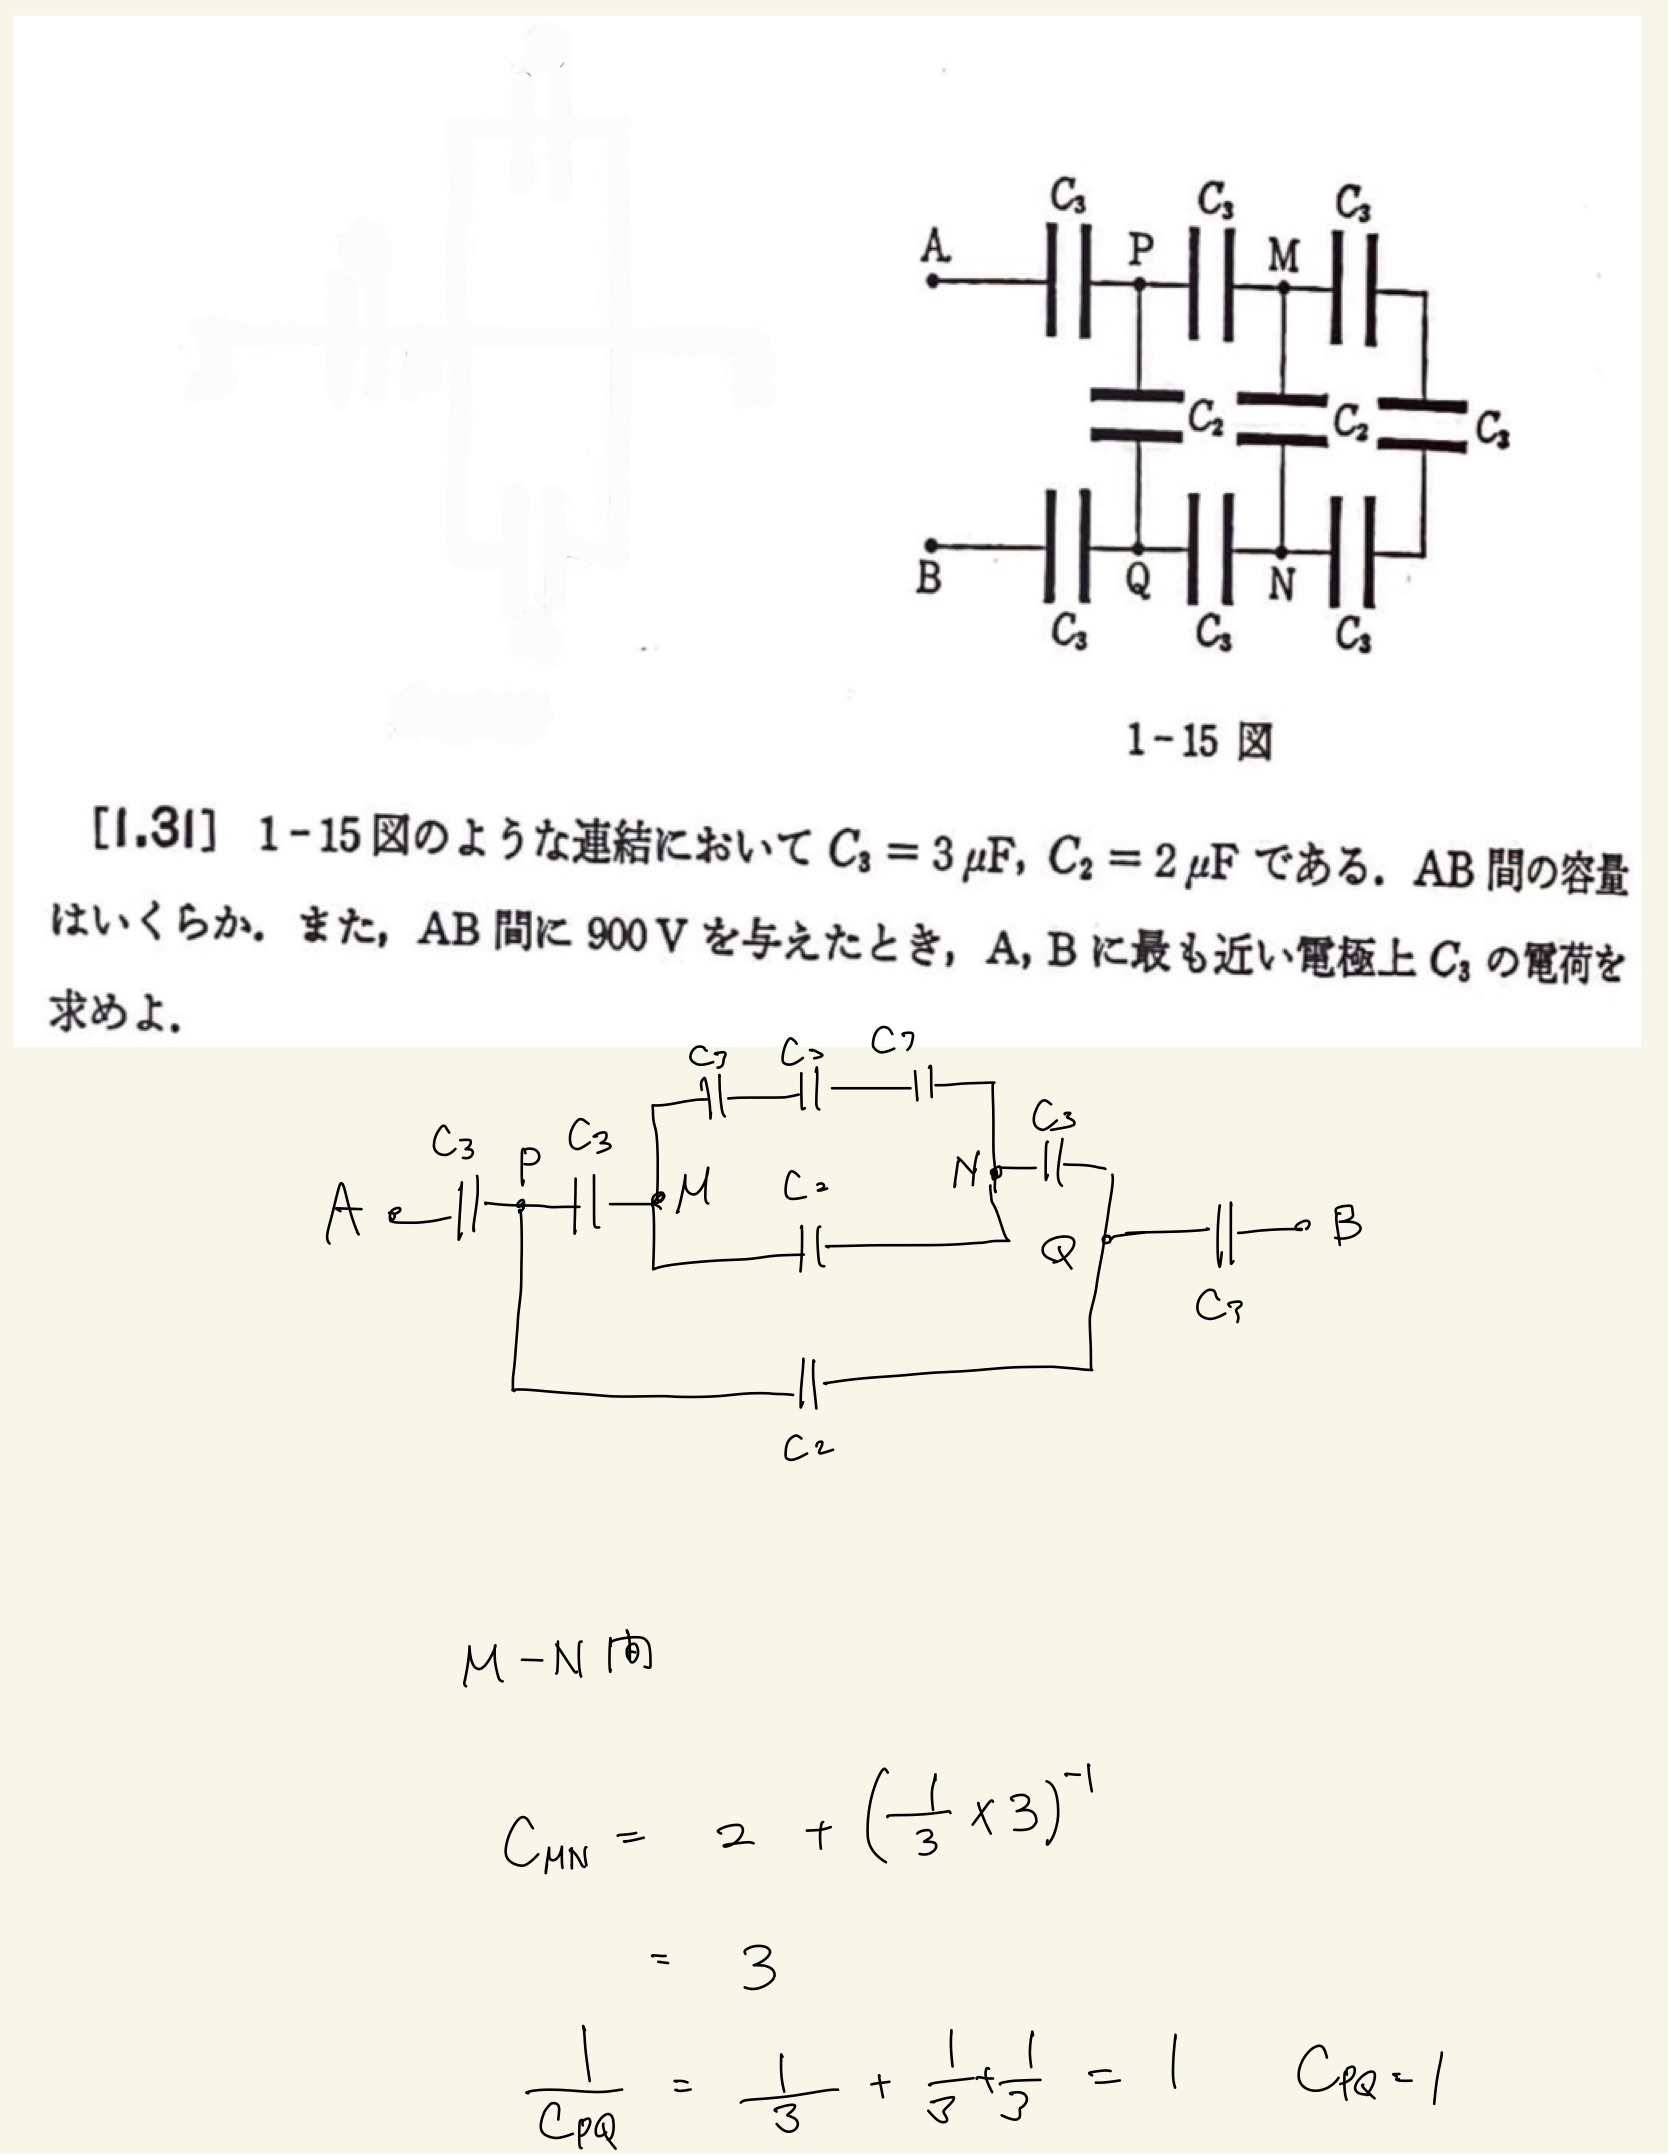 C₃ C₃ C₃
A P M
C₂ C₂ C₃
B Q N
C₃ C₃ C₃
1-15 図
[1.31] 1-15図のような連結において C₃ = 3 μF, C₂ = 2 μF である. AB 間の容量
はいくらか. また, AB 間に 900 V を与えたとき, A, B に最も近い電極上 C₃ の電荷を
求めよ.
C₃ C₃ C₃
C₃ P C₃ C₃
A M C₂ N
Q B
C₃
C₂
M-N間
C_MN = 2 + (1/3 × 3)⁻¹
= 3
1/C_PQ = 1/3 + 1/3 + 1/3 = 1 C_PQ = 1